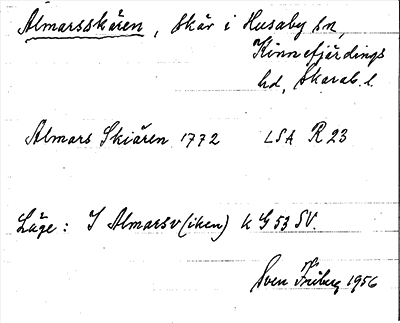 Almarsskären, skär i Husaby sn,
Kinnefjärdings
hd, Skarab. l.
Almars Skiären 1772 LSA R 23
Läge: I Almarsv(iken) k G 53 SV.
Sven Friberg 1956